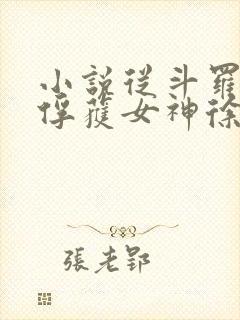 小說從斗羅
俘獲女神徐
張老郢